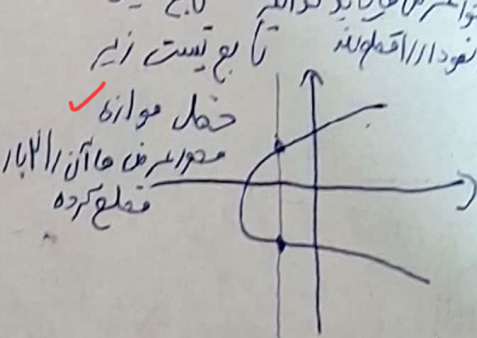 نمودار را قطع کند تابع نیست زیرا
خطی موازه
محور عرض ها آن را ۲ بار
قطع کرده